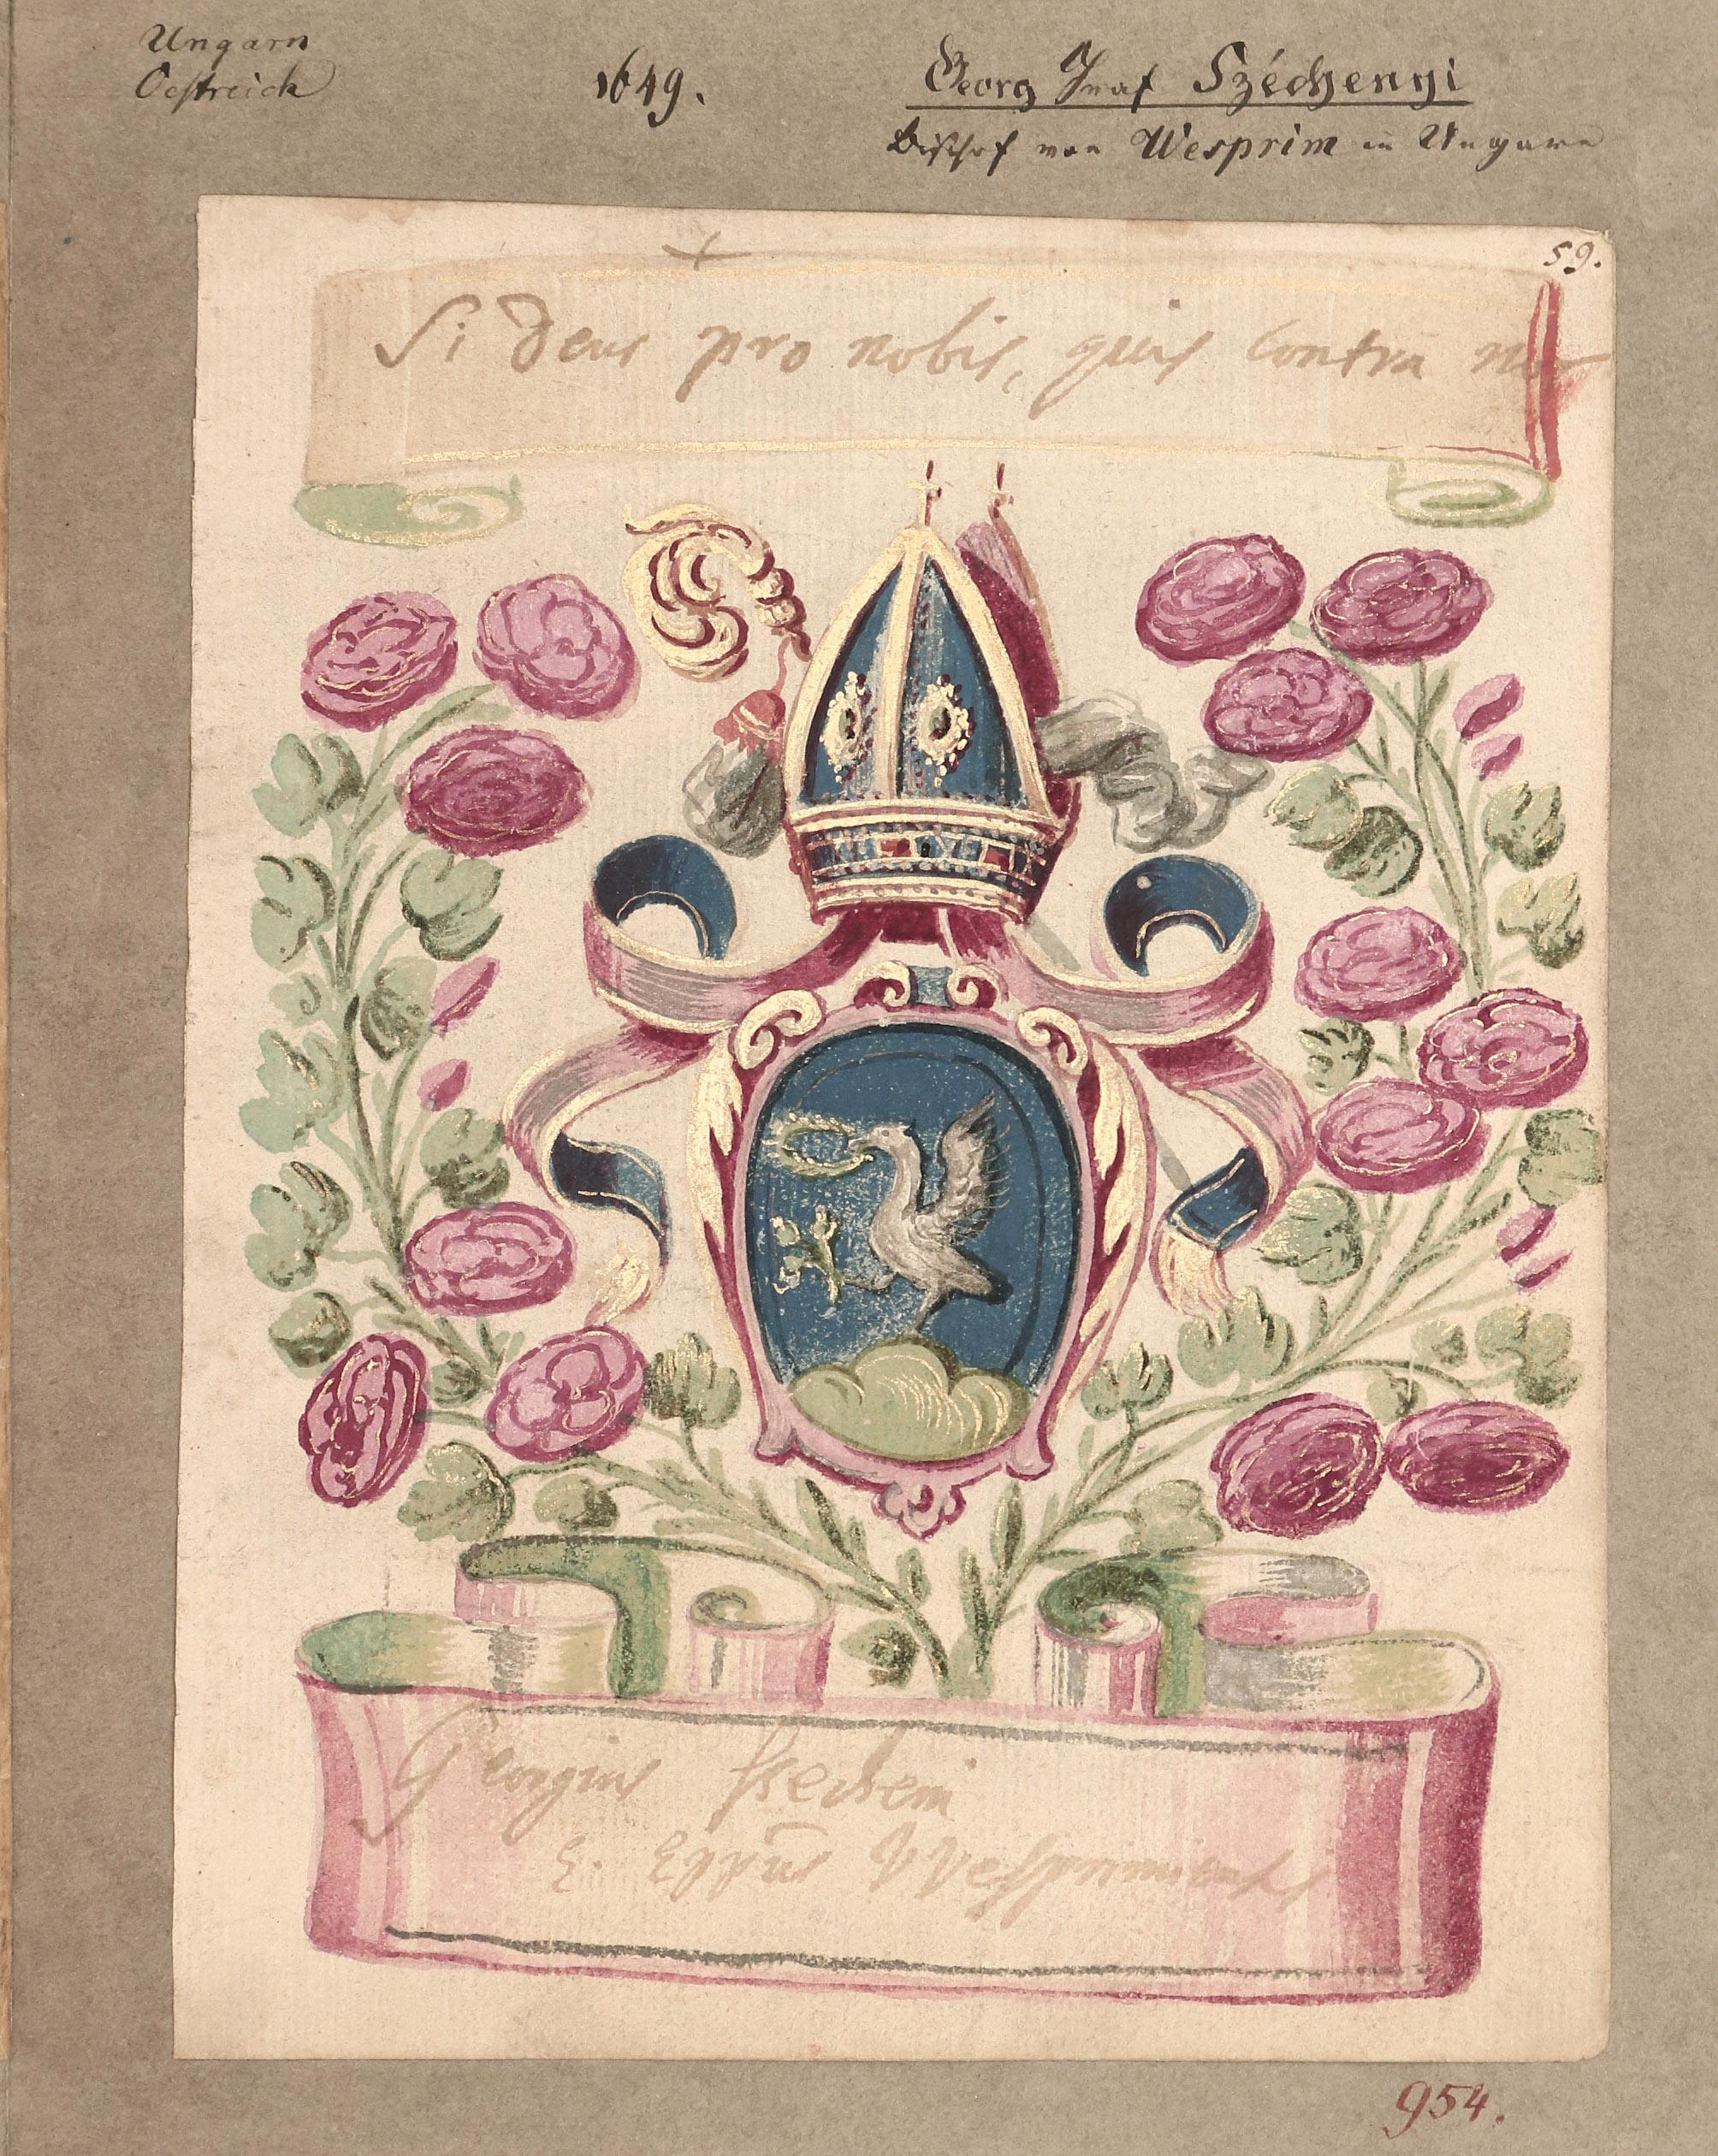 Ungarn
Oestreich
1649.
Georg Graf Széchenyi
Bischof von Wesprim in Ungarn
59.
Si Deus pro nobis, quis contra nos
Georgius Szecheni
E. Eppūs VVesprimiensis
954.